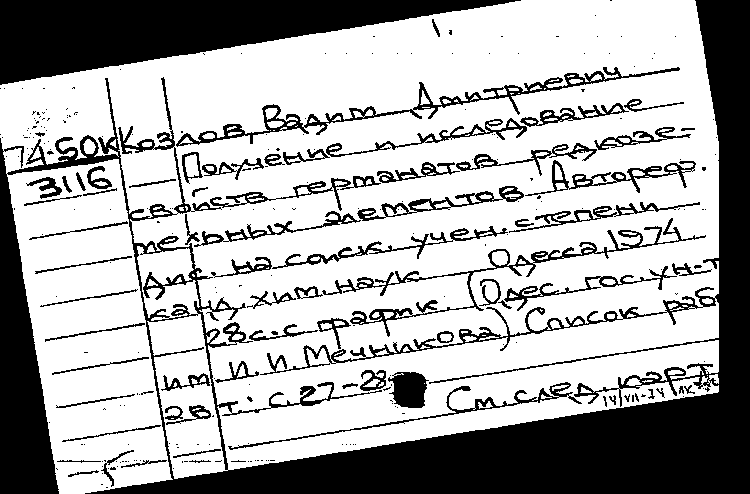 1.
74-50к Козлов, Вадим Дмитриевич
3116
Получение и исследование
свойств германатов редкозе-
мельных элементов: Автореф.
дис. на соиск. учен. степени
канд. хим. наук Одесса, 1974
28 с. с график. (Одес. гос. ун-т
им. И. И. Мечникова) Список раб
авт.: с. 27-28
См. след. карт
14/VII-74